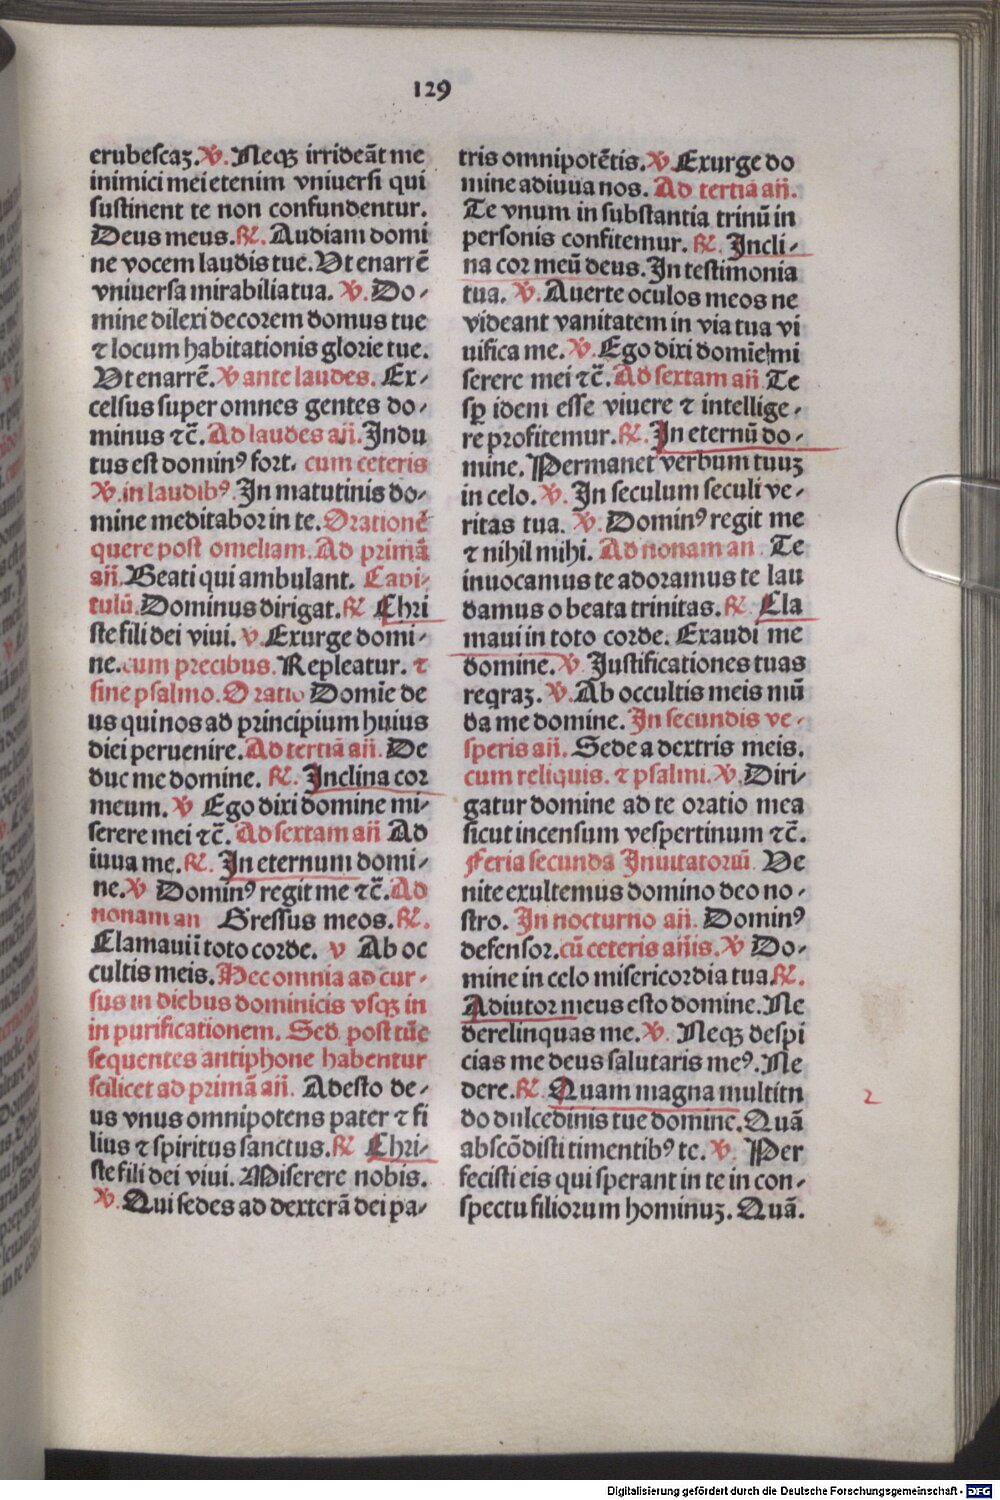 129
erubescaꝫ. ℣. Neqꝫ irrideāt me
inimici mei etenim vniuersi qui
sustinent te non confundentur.
Deus meus. ℟. Audiam domi
ne vocem laudis tue. Vt enarrē
vniuersa mirabilia tua. ℣. Do-
mine dilexi decorem domus tue
⁊ locum habitationis glorie tue.
Vt enarrē. ℣ ante laudes. Ex-
celsus super omnes gentes do-
minus ⁊c̄. Ad laudes añ. Indu
tus est dominꝰ fort. cum ceteris
℣. in laudibꝰ. In matutinis do-
mine meditabor in te. Orationē
quere post omeliam. Ad primā
añ. Beati qui ambulant. Capi-
tulū. Dominus dirigat. ℟ Chri
ste fili dei viui. ℣. Exurge domi-
ne. cum precibus. Repleatur. ⁊
sine psalmo. Oratio Domīe de
us qui nos ad principium huius
diei peruenire. Ad tertiā añ. De
duc me domine. ℟. Inclina cor
meum. ℣ Ego dixi domine mi-
serere mei ⁊c̄. Ad sextam añ Ad
iuua me. ℟. In eternum domi-
ne. ℣ Dominꝰ regit me ⁊c̄. Ad
nonam an Gressus meos. ℟.
Clamaui ī toto corde. ℣ Ab oc
cultis meis. Hec omnia ad cur-
sus in diebus dominicis vsqꝫ in
in purificationem. Sed post tūc
sequentes antiphone habentur
scilicet ad primā añ. Adesto de-
us vnus omnipotens pater ⁊ fi
lius ⁊ spiritus sanctus. ℟ Chri-
ste fili dei viui. Miserere nobis.
℣. Qui sedes ad dexterā dei pa-
tris omnipotētis. ℣. Exurge do
mine adiuua nos. Ad tertiā añ.
Te vnum in substantia trinū in
personis confitemur. ℟. Incli-
na cor meū deus. In testimonia
tua. ℣. Auerte oculos meos ne
videant vanitatem in via tua vi
uifica me. ℣. Ego dixi domīe mi
serere mei ⁊c̄. Ad sextam añ Te
sꝑ idem esse viuere ⁊ intellige-
re profitemur. ℟. In eternū do-
mine. Permanet verbum tuuꝫ
in celo. ℣. In seculum seculi ve-
ritas tua. ℣. Dominꝰ regit me
⁊ nihil mihi. Ad nonam an Te
inuocamus te adoramus te lau
damus o beata trinitas. ℟. Cla
maui in toto corde. Exaudi me
domine. ℣. Iustificationes tuas
reqraꝫ. ℣. Ab occultis meis mū
da me domine. In secundis ve-
speris añ. Sede a dextris meis.
cum reliquis. ⁊ psalmi. ℣. Diri-
gatur domine ad te oratio mea
sicut incensum vespertinum ⁊c̄.
Feria secunda Inuitatoriū. Ve
nite exultemus domino deo no-
stro. In nocturno añ. Dominꝰ
defensor. cū ceteris añis. ℣ Do-
mine in celo misericordia tua. ℟.
Adiutor meus esto domine. Ne
derelinquas me. ℣. Neqꝫ despi
cias me deus salutaris meꝰ. Ne
dere. ℟. Quam magna multitu
do dulcedinis tue domine. Quā
abscōdisti timentibꝰ te. ℣. Per
fecisti eis qui sperant in te in con-
spectu filiorum hominuꝫ. Quā.
2
Digitalisierung gefördert durch die Deutsche Forschungsgemeinschaft - DFG